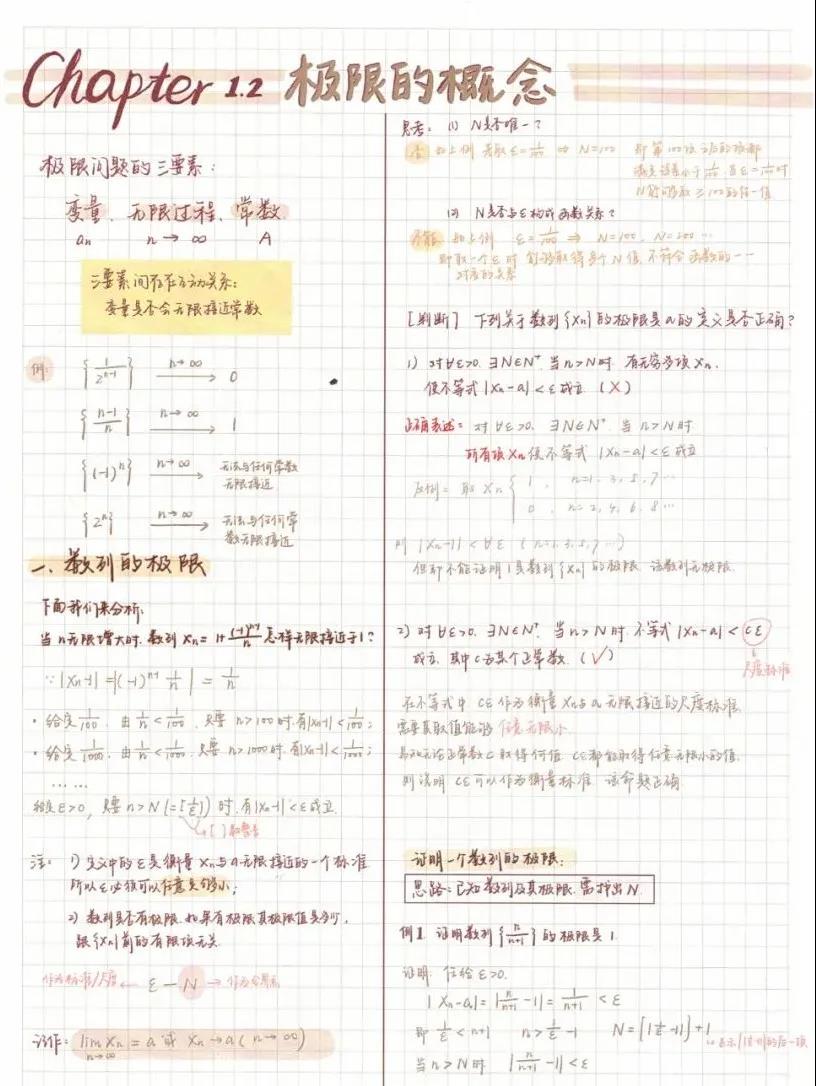 Chapter 1.2 极限的概念
极限问题的三要素：
变量、无限过程、常数
aₙ n→∞ A
三要素间存在互动关系：
变量是否会无限接近常数
例：
{1/2ⁿ⁻¹} n→∞ 0
{n-1/n} n→∞ 1
{(-1)ⁿ} n→∞ 无法与任何常数
无限接近
{2ⁿ} n→∞ 无法与任何常
数无限接近
一、数列的极限
下面我们来分析：
当n无限增大时，数列 Xn = 1+(-1)ⁿ⁻¹/n 怎样无限接近于1？
∵|Xn-1|=|(-1)ⁿ⁻¹ 1/n| = 1/n
· 给定1/100，由1/n<1/100，只要 n>100时，有|Xn-1|<1/100；
· 给定1/1000，由1/n<1/1000，只要 n>1000时，有|Xn-1|<1/1000；
……
ε>0，只要 n>N(=[1/ε])时，有|Xn-1|<ε成立
[ ]取整
注： 1) 定义中的ε是衡量 Xn与a无限接近的一个标准
所以ε必须可以任意足够小；
2) 数列是否有极限，如果有极限其极限值是多少，
跟{Xn}前的有限项无关
作为标准/尺度← ε — N →
记作：lim Xn = a 或 Xn→a (n→∞)
n→∞
思考： (1) N是否唯一？
否 如上例 若取 ε=1/100 ⇒ N=100 即第100项之后的项都
满足误差小于1/100，当ε=1/100时
N能够取≥100的任一值
(2) N是否与ε构成函数关系？
不能 如上例 ε=1/100 ⇒ N=100, N=200…
即取一个ε时 能够取得多个N值，不符合函数的一一
对应的关系
[判断] 下列关于数列{Xn}的极限是a的定义是否正确？
1) 对∀ε>0, ∃N∈N⁺, 当n>N时，有无穷多项Xn,
使不等式|Xn-a|<ε成立 (×)
正确表述：对∀ε>0, ∃N∈N⁺, 当n>N时
所有项Xn使不等式 |Xn-a|<ε成立
反例：取 Xn { 1, n=1,3,5,7…
0, n=2,4,6,8…
则 |Xn-1|<∀ε (n=1,3,5,7…)
但却不能证明1是数列{Xn}的极限，该数列无极限
2) 对∀ε>0, ∃N∈N⁺, 当n>N时，不等式|Xn-a|<cε
成立，其中c为某个正常数 (√)
尺度标准
在不等式中 cε作为衡量Xn与a无限接近的尺度标准
需要其取值能够任意无限小
无论正常数c取得何值，cε都能取得任意无限小的值
则说明 cε可以作为衡量标准，该命题正确
证明一个数列的极限：
思路：已知数列及其极限，需找出N
例1. 证明数列{n/n+1}的极限是1
证明：任给ε>0,
|Xn-a|=|n/n+1-1|=1/n+1<ε
即1/ε<n+1 n>1/ε-1 N=[|1/ε-1|]+1
当n>N时 |n/n+1-1|<ε